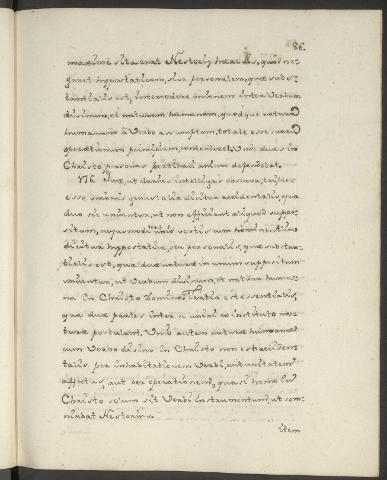 86.
maximè sita erat Nestorij hæresis, quod ne-
garet hypostaticam, sive personalem, quæ subs-
tantialis est, intercedere unionem inter Verbum
divinum, et naturam humanam, quodque natura
humanam à Verbo assumptam, totale esse suarū
operationum principium, contenderet. Unde duas in
Christo personas pertinaci animo defendebat.
176. Quæ, ut clarius intelligas observa, triplex
esse unionis genus: alia dicitur accidentalis, qua
duo sic uniuntur, ut non efficiant aliquod suppo-
situm, cujusmodi unio vestis cum homine. Alia
dicitur hypostatica, seu personalis, quæ substan-
tialis est, qua duæ naturæ in unum suppositum
uniuntur, ut Verbum divinum, et natura huma-
na in Christo Domino. Tertia est essentialis,
qua duæ partes inter se uniri ex instituto na-
turæ postulant. Unio autem naturæ humanæ
cum Verbo divino in Christo non est acciden-
talis per inhabitationem Verbi, aut unitatem
affectus, aut per operationem, quasi homo in
Christo solum sit Verbi instrumentum, ut som-
niabat Nestorius.
item